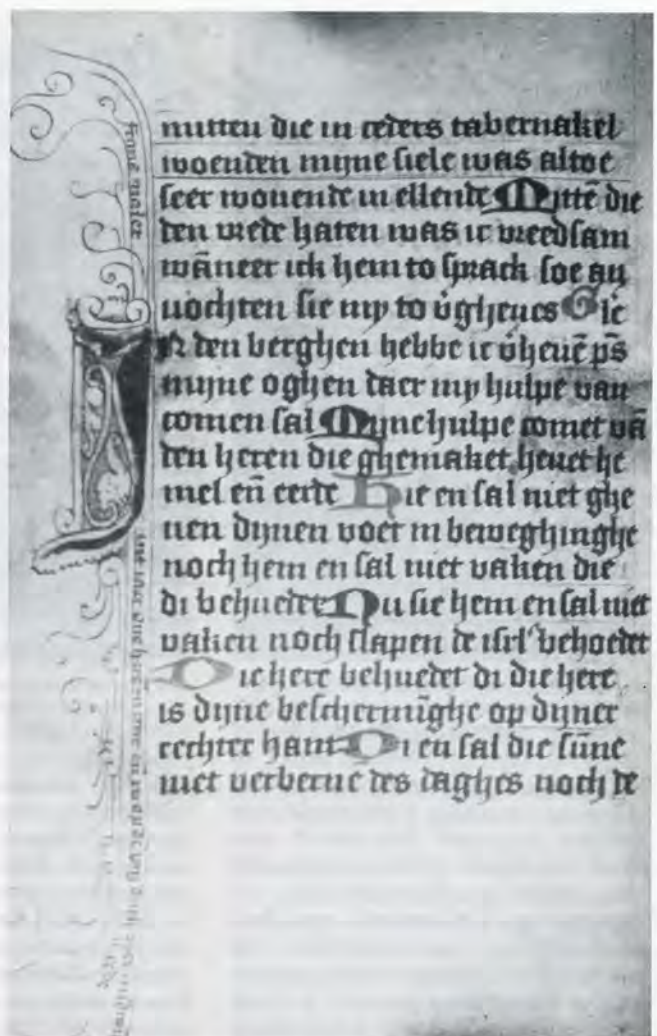 mitten die in ceders tabernakel
woenden myne siele was altoe
seer wonende in ellende Mittē die
den vrede haten was ic vreedsam
wāneer ick hem to sprack soe an
uochten sie my to v̄gheues Glē
N den berghen hebbe ic v̄heuē ps̄
myne oghen daer my hulpe van
comen sal Myne hulpe comet vā
den heren die ghemaket heuet he
mel en̄ eerde Hie en sal niet ghe
uen dynen voet in beweghinghe
noch hem en sal niet vaken die
di behuedet Nu sie hem en sal niet
vaken noch slapen de isrl' behoedet
Die here behuedet di die here
is dyne beschermīghe op dyner
rechter hant Di en sal die sūne
niet verberne des daghes noch de